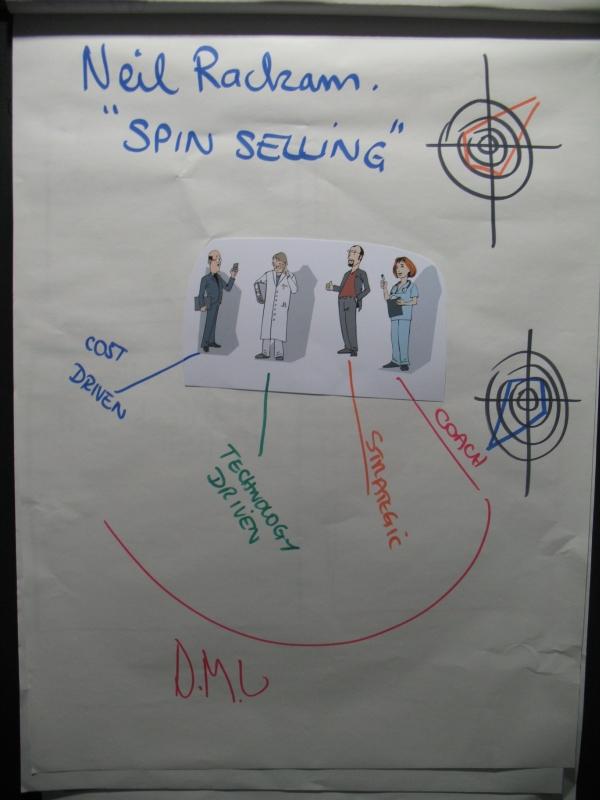 Neil Rackam.
"SPIN SELLING"
COST
DRIVEN
TECHNOLOGY
DRIVEN
STRATEGIC
COACH
D.M.U